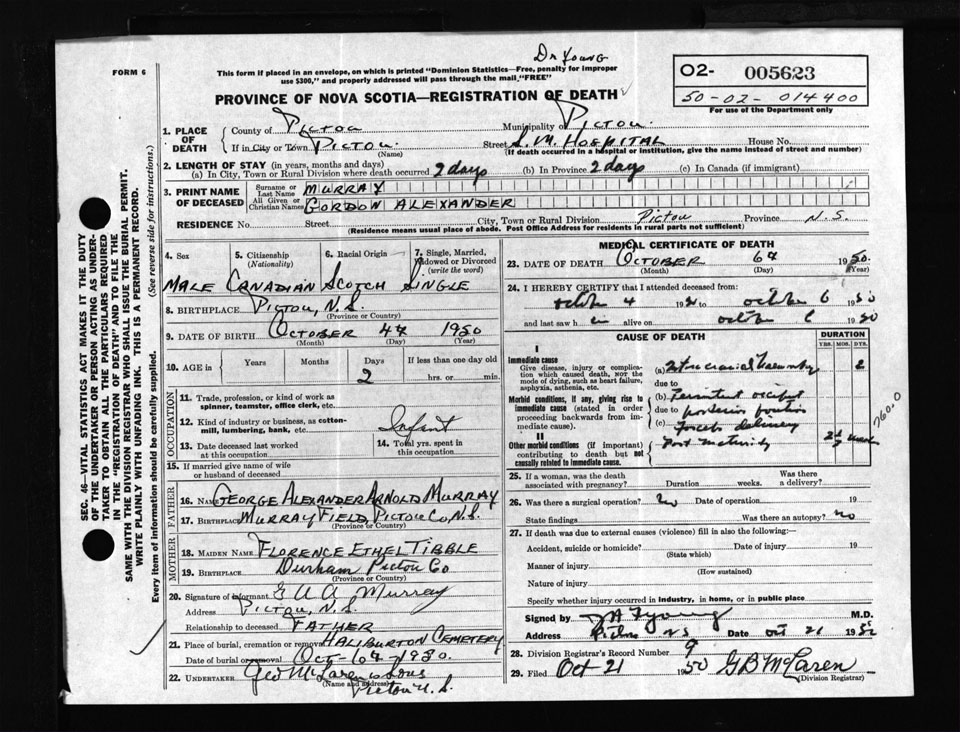 Dr Young
FORM 6
This form if placed in an envelope, on which is printed "Dominion Statistics—Free, penalty for improper
use $300," and properly addressed will pass through the mail "FREE"
O2- 005623
50-02-014400
For use of the Department only
PROVINCE OF NOVA SCOTIA—REGISTRATION OF DEATH
1. PLACE OF DEATH
County of Pictou Municipality of Pictou.
If in City or Town Pictou. (Name) Street S.M. Hospital House No.
(If death occurred in a hospital or institution, give the name instead of street and number)
2. LENGTH OF STAY (in years, months and days)
(a) In City, Town or Rural Division where death occurred 2 days (b) In Province 2 days (c) In Canada (if immigrant)
3. PRINT NAME OF DECEASED
Surname or Last Name MURRAY
All Given or Christian Names GORDON ALEXANDER
RESIDENCE No. Street City, Town or Rural Division Pictou Province N.S.
(Residence means usual place of abode. Post Office Address for residents in rural parts not sufficient)
4. Sex 5. Citizenship (Nationality) 6. Racial Origin 7. Single, Married, Widowed or Divorced (write the word)
Male Canadian Scotch Single
8. BIRTHPLACE Pictou, N.S.
(Province or Country)
9. DATE OF BIRTH October 4th 1950
(Month) (Day) (Year)
10. AGE in Years Months Days If less than one day old
2 hrs. or min.
OCCUPATION
11. Trade, profession, or kind of work as
spinner, teamster, office clerk, etc.
12. Kind of industry or business, as cotton-
mill, lumbering, bank, etc. Infant
13. Date deceased last worked
at this occupation
14. Total yrs. spent in
this occupation
15. If married give name of wife
or husband of deceased
FATHER
16. Name George Alexander Arnold Murray
17. BIRTHPLACE Murray Field Pictou Co, N.S.
(Province or Country)
MOTHER
18. MAIDEN NAME Florence Ethel Tibble
19. BIRTHPLACE Durham Pictou Co
(Province or Country)
20. Signature of informant G A A Murray
Address Pictou, N.S.
Relationship to deceased Father
21. Place of burial, cremation or removal Haliburton Cemetery
Date of burial or removal Oct-6th-1950.
22. UNDERTAKER Geo McLaren & Sons
(Name and address)
Pictou N.S.
MEDICAL CERTIFICATE OF DEATH
23. DATE OF DEATH October 6th 1950.
(Month) (Day) (Year)
24. I HEREBY CERTIFY that I attended deceased from:
October 4 19 to October 6 1950
and last saw h im alive on October 6 1950
CAUSE OF DEATH
DURATION
YRS. MOS. DYS.
I
Immediate cause
Give disease, injury or complica-
tion which caused death, NOT the
mode of dying, such as heart failure,
asphyxia, asthenia, etc.
(a) 2
due to
Morbid conditions, if any, giving rise to
immediate cause (stated in order
proceeding backwards from im-
mediate cause).
(b) Persistent occiput
due to posterior position
(c) Forceps delivery
II
Other morbid conditions (if important)
contributing to death but not
causally related to immediate cause.
Post maturity
760.0
25. If a woman, was the death
associated with pregnancy? Duration weeks. Was there
a delivery?
26. Was there a surgical operation? no Date of operation 19
State findings Was there an autopsy? no
27. If death was due to external causes (violence) fill in also the following:—
Accident, suicide or homicide? Date of injury 19
(State which)
Manner of injury
(How sustained)
Nature of injury
Specify whether injury occurred in industry, in home, or in public place
Signed by Young M.D.
Address Pictou NS Date Oct 21 19
28. Division Registrar's Record Number 9
29. Filed Oct 21 1950 G B McLaren
(Division Registrar)
SEC. 46—VITAL STATISTICS ACT MAKES IT THE DUTY
OF THE UNDERTAKER OR PERSON ACTING AS UNDER-
TAKER TO OBTAIN ALL THE PARTICULARS REQUIRED
IN THE "REGISTRATION OF DEATH" AND TO FILE THE
SAME WITH THE DIVISION REGISTRAR WHO SHALL ISSUE THE BURIAL PERMIT.
WRITE PLAINLY WITH UNFADING INK. THIS IS A PERMANENT RECORD.
Every item of information should be carefully supplied. (See reverse side for instructions.)